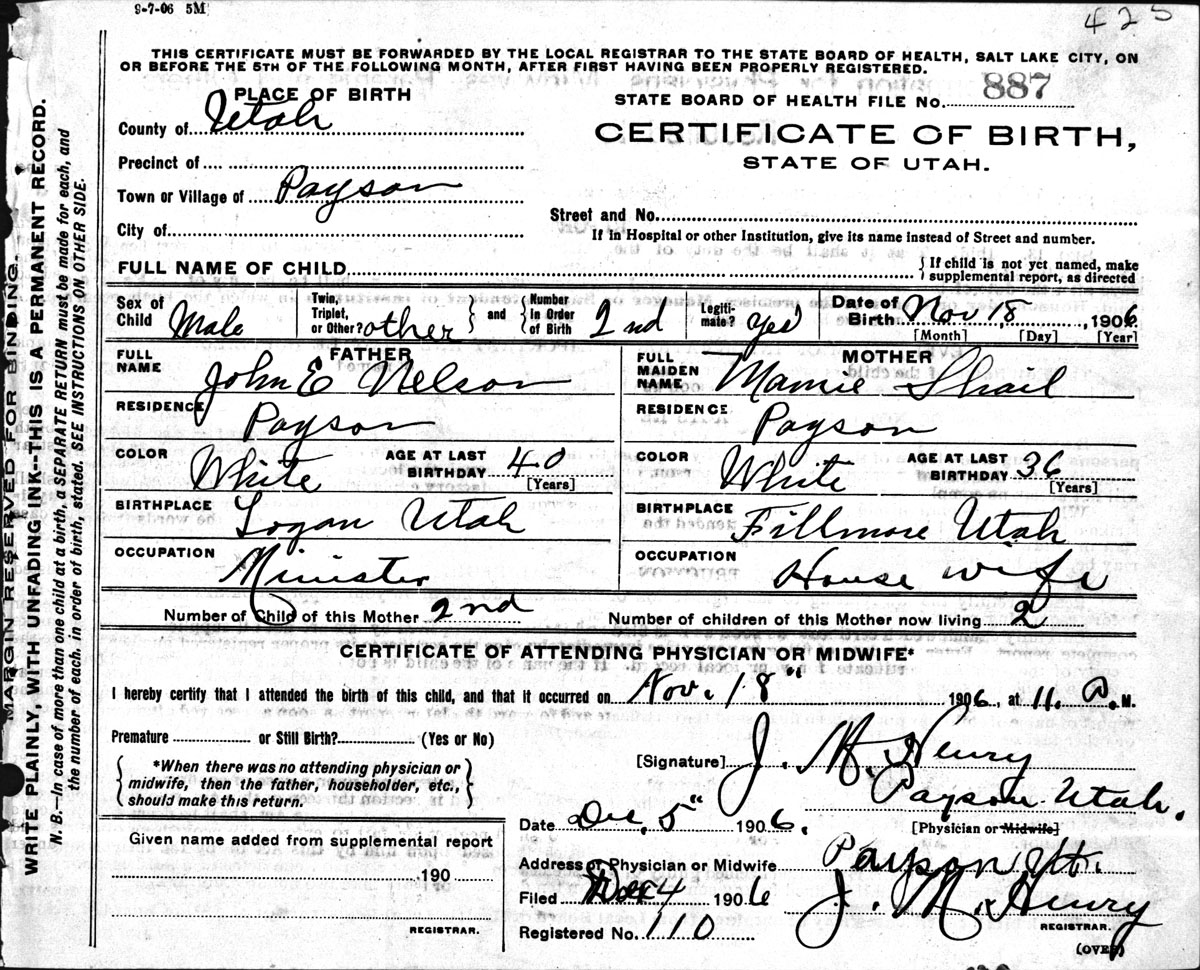 9-7-06 5M
425
THIS CERTIFICATE MUST BE FORWARDED BY THE LOCAL REGISTRAR TO THE STATE BOARD OF HEALTH, SALT LAKE CITY, ON
OR BEFORE THE 5TH OF THE FOLLOWING MONTH, AFTER FIRST HAVING BEEN PROPERLY REGISTERED.
PLACE OF BIRTH
STATE BOARD OF HEALTH FILE No. 887
County of Utah
CERTIFICATE OF BIRTH,
STATE OF UTAH.
Precinct of
Town or Village of Payson
Street and No.
City of
If in Hospital or other Institution, give its name instead of Street and number.
FULL NAME OF CHILD
{ If child is not yet named, make
supplemental report, as directed
Sex of Child Male
Twin, Triplet, or Other? other } and { Number In Order of Birth 2nd
Legiti- mate? Yes
Date of Birth Nov 18, 1906
[Month] [Day] [Year]
FATHER
FULL NAME John E Nelson
RESIDENCE Payson
COLOR White AGE AT LAST BIRTHDAY 40
[Years]
BIRTHPLACE Logan Utah
OCCUPATION Minister
MOTHER
FULL MAIDEN NAME Mamie Shail
RESIDENCE Payson
COLOR White AGE AT LAST BIRTHDAY 36
[Years]
BIRTHPLACE Fillmore Utah
OCCUPATION House wife
Number of Child of this Mother 2nd Number of children of this Mother now living 2
CERTIFICATE OF ATTENDING PHYSICIAN OR MIDWIFE*
I hereby certify that I attended the birth of this child, and that it occurred on Nov. 18" 1906, at 11. P.M.
Premature or Still Birth? (Yes or No)
{ *When there was no attending physician or
midwife, then the father, householder, etc.,
should make this return. }
[Signature] J. M. Henry
Payson Utah.
Date Dec. 5" 1906. [Physician or Midwife]
Given name added from supplemental report
190
REGISTRAR.
Address of Physician or Midwife Payson Ut.
Filed Dec 4 1906 J. M. Henry
REGISTRAR.
Registered No. 110
(OVER)
MARGIN RESERVED FOR BINDING.
WRITE PLAINLY, WITH UNFADING INK--THIS IS A PERMANENT RECORD.
N. B.—In case of more than one child at a birth, a SEPARATE RETURN must be made for each, and
the number of each, in order of birth, stated. SEE INSTRUCTIONS ON OTHER SIDE.